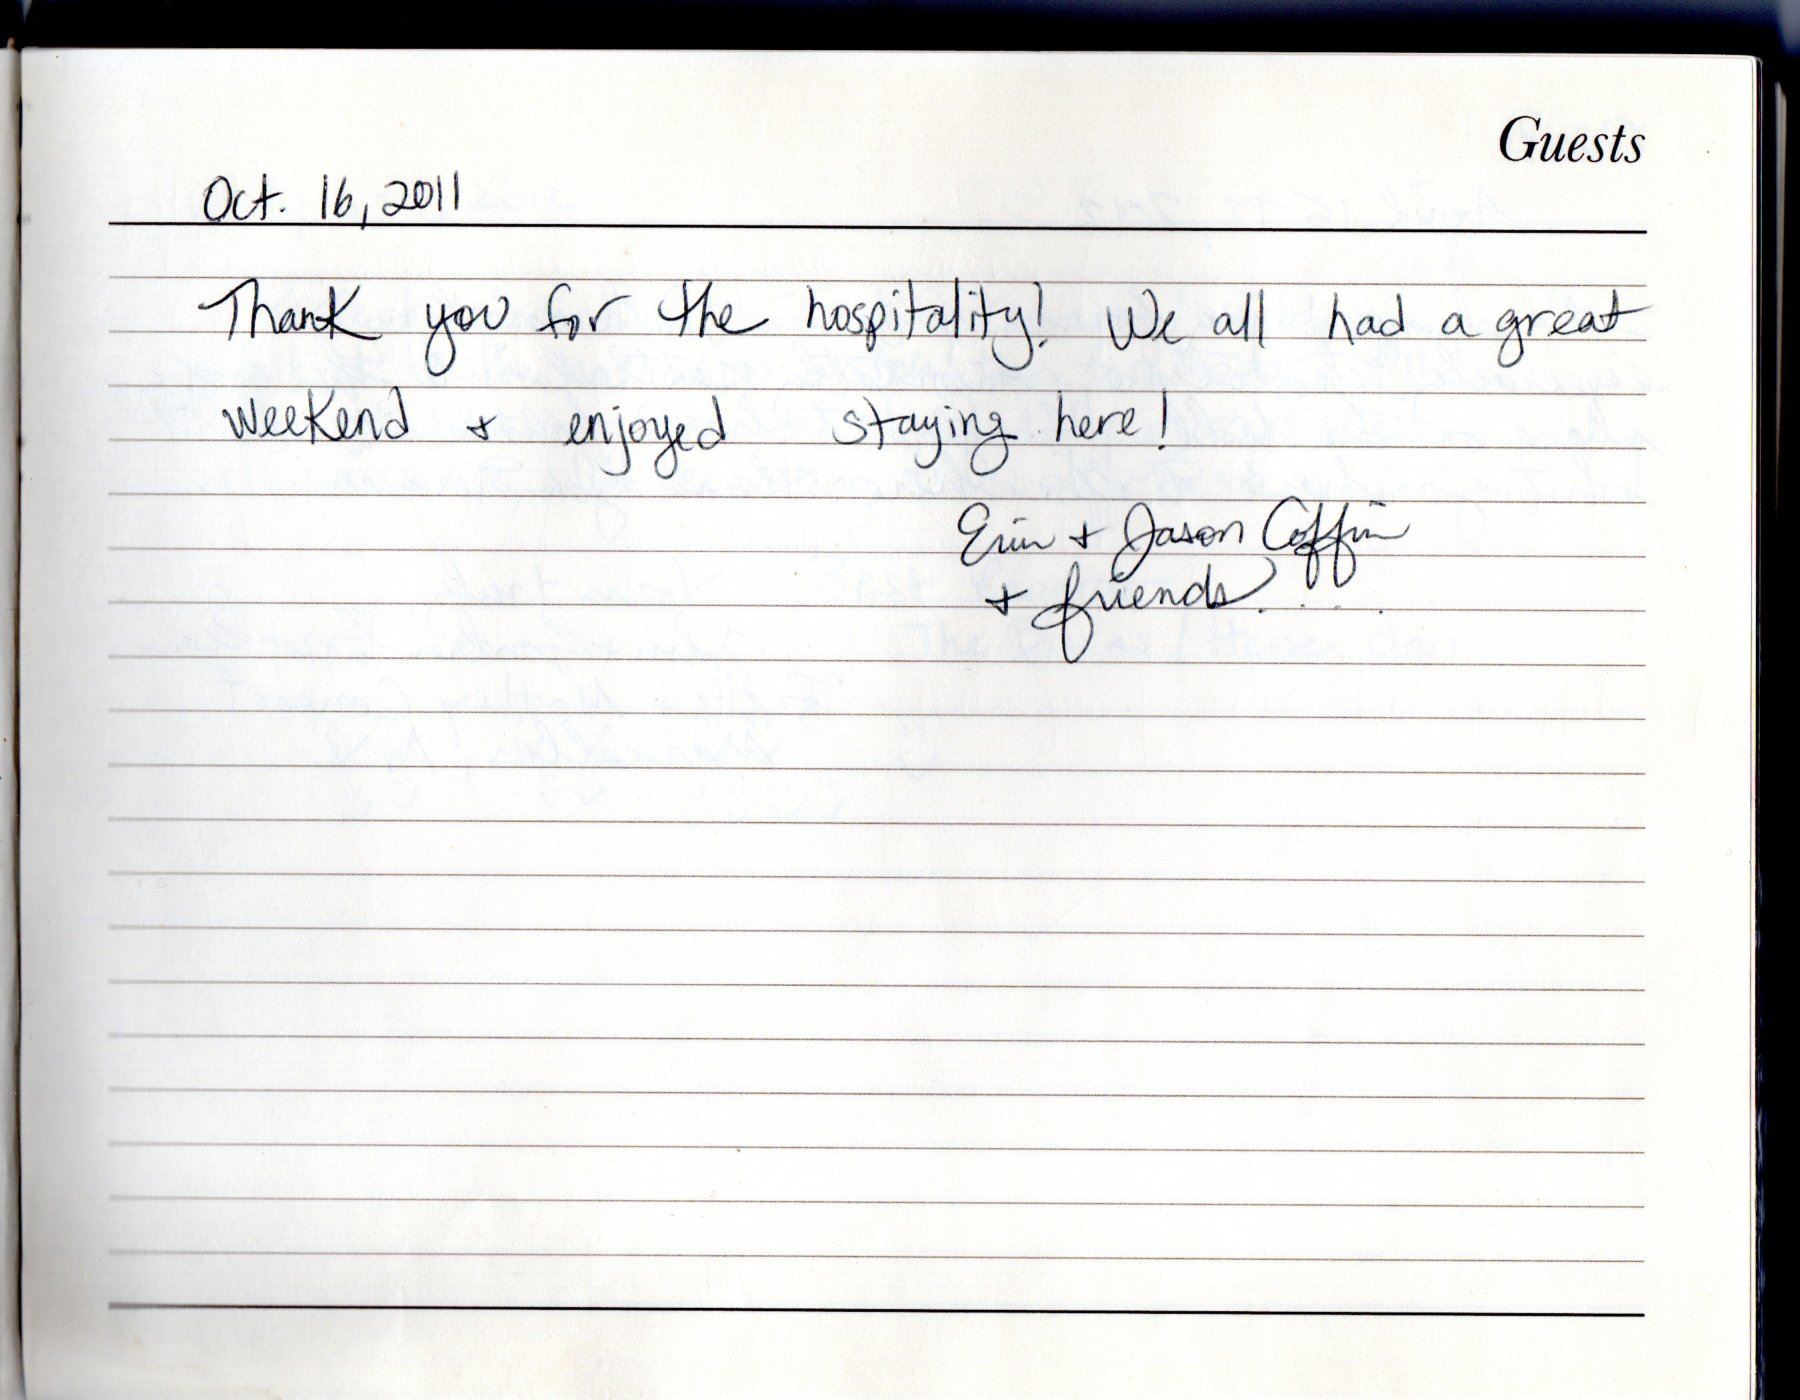 Guests
Oct. 16, 2011
Thank you for the hospitality! We all had a great
weekend + enjoyed staying here!
Erin + Jason Coffin
+ friends....